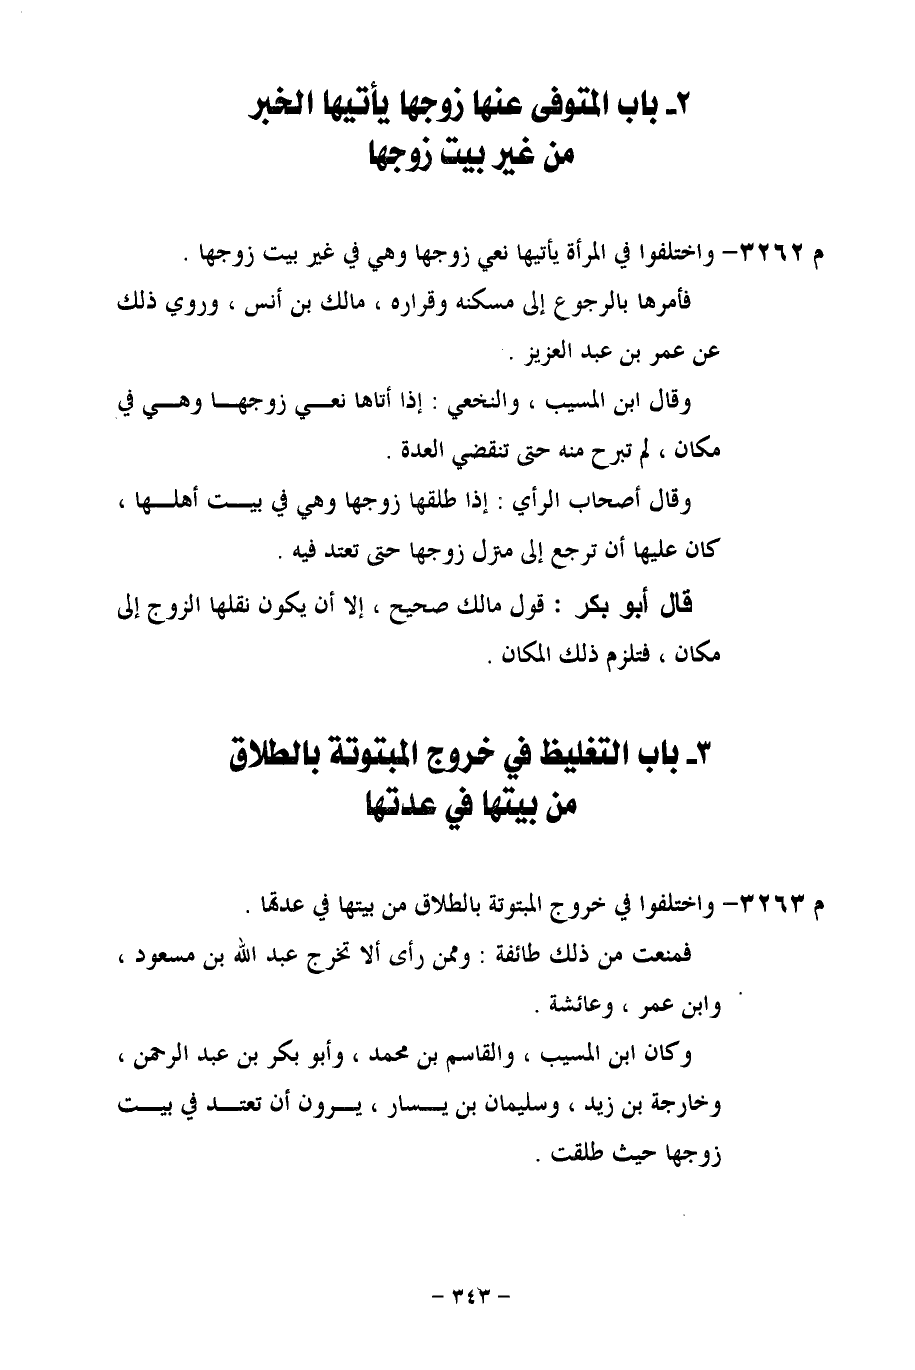 ٢ـ باب المتوفى عنها زوجها يأتيها الخبر
من غير بيت زوجها
م ٣٢٦٢– واختلفوا في المرأة يأتيها نعي زوجها وهي في غير بيت زوجها .
فأمرها بالرجوع إلى مسكنه وقراره ، مالك بن أنس ، وروي ذلك
عن عمر بن عبد العزيز .
وقال ابن المسيب ، والنخعي : إذا أتاها نعـــي زوجهـــا وهـــي في
مكان ، لم تبرح منه حتى تنقضي العدة .
وقال أصحاب الرأي : إذا طلقها زوجها وهي في بيـــت أهلـــها ،
كان عليها أن ترجع إلى منزل زوجها حتى تعتد فيه .
قال أبو بكر : قول مالك صحيح ، إلا أن يكون نقلها الزوج إلى
مكان ، فتلزم ذلك المكان .
٣ـ باب التغليظ في خروج المبتوتة بالطلاق
من بيتها في عدتها
م ٣٢٦٣– واختلفوا في خروج المبتوتة بالطلاق من بيتها في عدتها .
فمنعت من ذلك طائفة : وممن رأى ألا تخرج عبد الله بن مسعود ،
وابن عمر ، وعائشة .
وكان ابن المسيب ، والقاسم بن محمد ، وأبو بكر بن عبد الرحمن ،
وخارجة بن زيد ، وسليمان بن يـــسار ، يـــرون أن تعتـــد في بيـــت
زوجها حيث طلقت .
– ٣٤٣ –